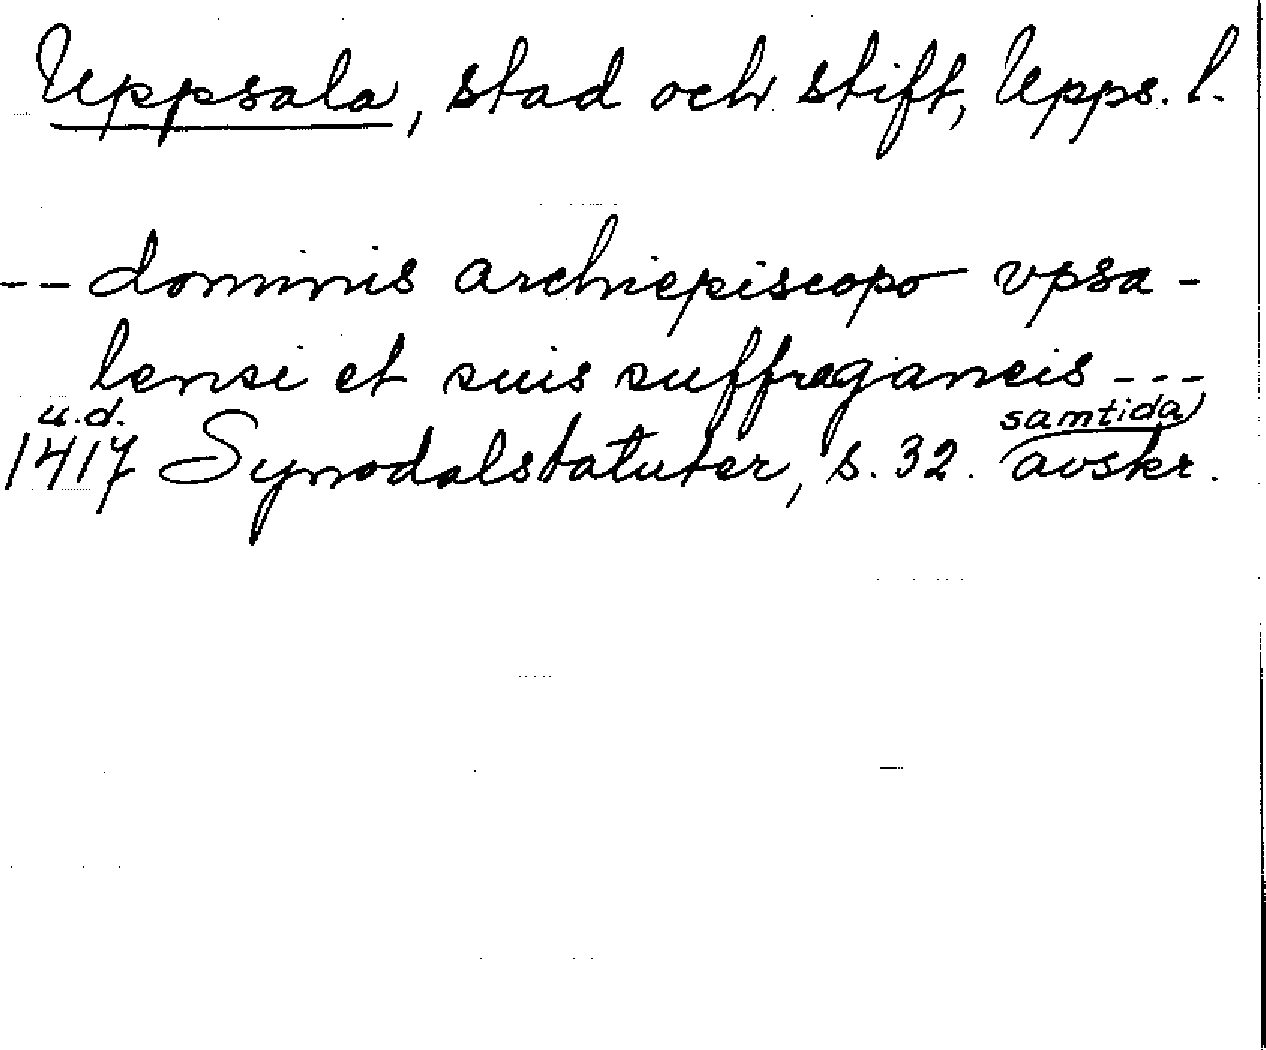 Uppsala, stad och stift, Upps. l.
-- dominis archiepiscopo vpsa-
lensi et suis suffraganeis ---
u.d. samtida
1417 Synodalstatuter, s. 32. avskr.